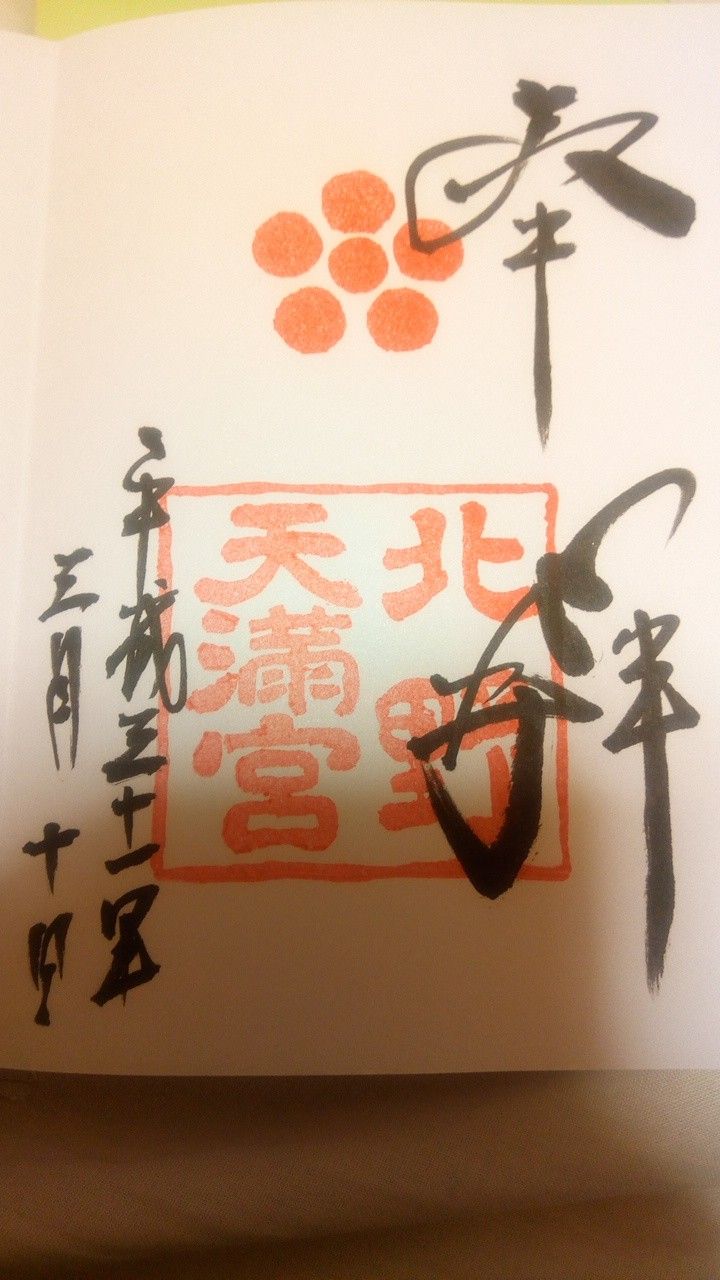 奉拝
北野
天満宮
平成三十一年
三月十日